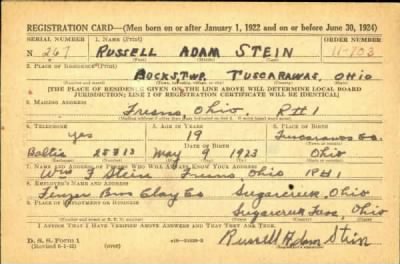 REGISTRATION CARD—(Men born on or after January 1, 1922 and on or before June 30, 1924)
SERIAL NUMBER 1. NAME (Print) ORDER NUMBER
N 267 RUSSELL ADAM STEIN 11-703
(First) (Middle) (Last)
2. PLACE OF RESIDENCE (Print)
BUCKS, TWP. TUSCARAWAS, OHIO
[THE PLACE OF RESIDENCE GIVEN ON THE LINE ABOVE WILL DETERMINE LOCAL BOARD
JURISDICTION; LINE 2 OF REGISTRATION CERTIFICATE WILL BE IDENTICAL]
3. MAILING ADDRESS
Fresno, Ohio. R#1
4. TELEPHONE 5. AGE IN YEARS 6. PLACE OF BIRTH
Yes 19 Tuscarawas Co.
DATE OF BIRTH
Baltic 25813 May 9 1923 Ohio
7. NAME AND ADDRESS OF PERSON WHO WILL ALWAYS KNOW YOUR ADDRESS
Wm F Stein Fresno, Ohio R#1
8. EMPLOYER'S NAME AND ADDRESS
Finzer Bros Clay Co Sugarcreek, Ohio
9. PLACE OF EMPLOYMENT OR BUSINESS
Sugarcreek Ohio
I AFFIRM THAT I HAVE VERIFIED ABOVE ANSWERS AND THAT THEY ARE TRUE.
D. S. S. Form 1
(over)
Russell Adam Stein